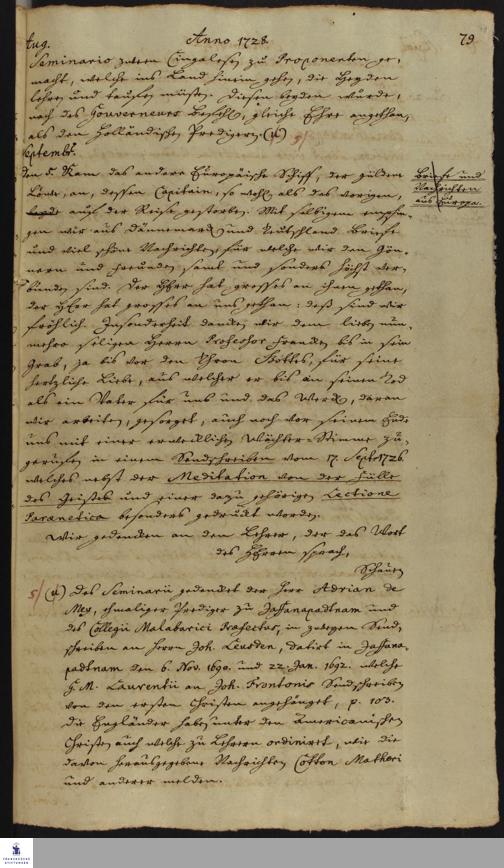 Aug. Anno 1728. 79
Seminario zween Cingalesen zu Proponenten ge-
macht, welche ins Land hinein gehen, die Heyden
lehren und tauffen müsten. Diesen beyden würde,
nach des Gouverneurs Befehl, gleiche Ehre angethan,
als den Holländischen Predigern. (4)
Septembr.
Den 5. Kam das andere Europäische Schiff, der güldene
Löwe, an, dessen Capitain, so wohl als des vorigen,
auf der Reise gestorben. Mit selbigem empfin-
gen wir aus Dännemark und Teutschland Briefe
und viel schöne Nachrichten, für welche wir den Gön-
nern und Freunden samt und sonders höchst ver-
bunden sind. Der HErr hat grosses an ihnen gethan,
der HErr hat grosses an uns gethan: deß sind wir
fröhlich. Insonderheit danken wir dem lieben nun-
mehro seligen Herrn Professor Francken bis in sein
Grab, ja bis vor den Thron Gottes, für seine
hertzliche Liebe, aus welcher er bis an seinen Tod
als ein Vater für uns und das Werck, daran
wir arbeiten, gesorget, auch noch vor seinem Ende
uns mit einer erwecklichen Wächter-Stimme zu-
geruffen in einem Sendschreiben vom 17. Sept. 1726.
welches nebst der Meditation von der Fülle
des Geistes und einer dazu gehörigen Lectione
Paraenetica besonders gedruckt worden.
Wir gedencken an den Lehrer, der das Wort
des HErren sprach,
Schauen
Briefe und
Nachrichten
aus Europa.
5/ (4) Des Seminarii gedencket der Herr Adrian de
Mey, ehmaliger Prediger zu Jaffanapatnam und
des Collegii Malabarici Praefectus, in zweyen Send-
schreiben an Herrn Joh. Leusden, datirt in Jaffana-
patnam den 6. Nov. 1690. und 22. Jan. 1692. welche
G. M. Laurentii an Joh. Frontonis Sendschreiben
von den ersten Christen angehänget, p. 103.
Die Engländer haben unter den Americanischen
Christen auch welche zu Lehrern ordiniret, wie die
davon herausgegebene Nachrichten Cotton Matheri
und anderer melden.